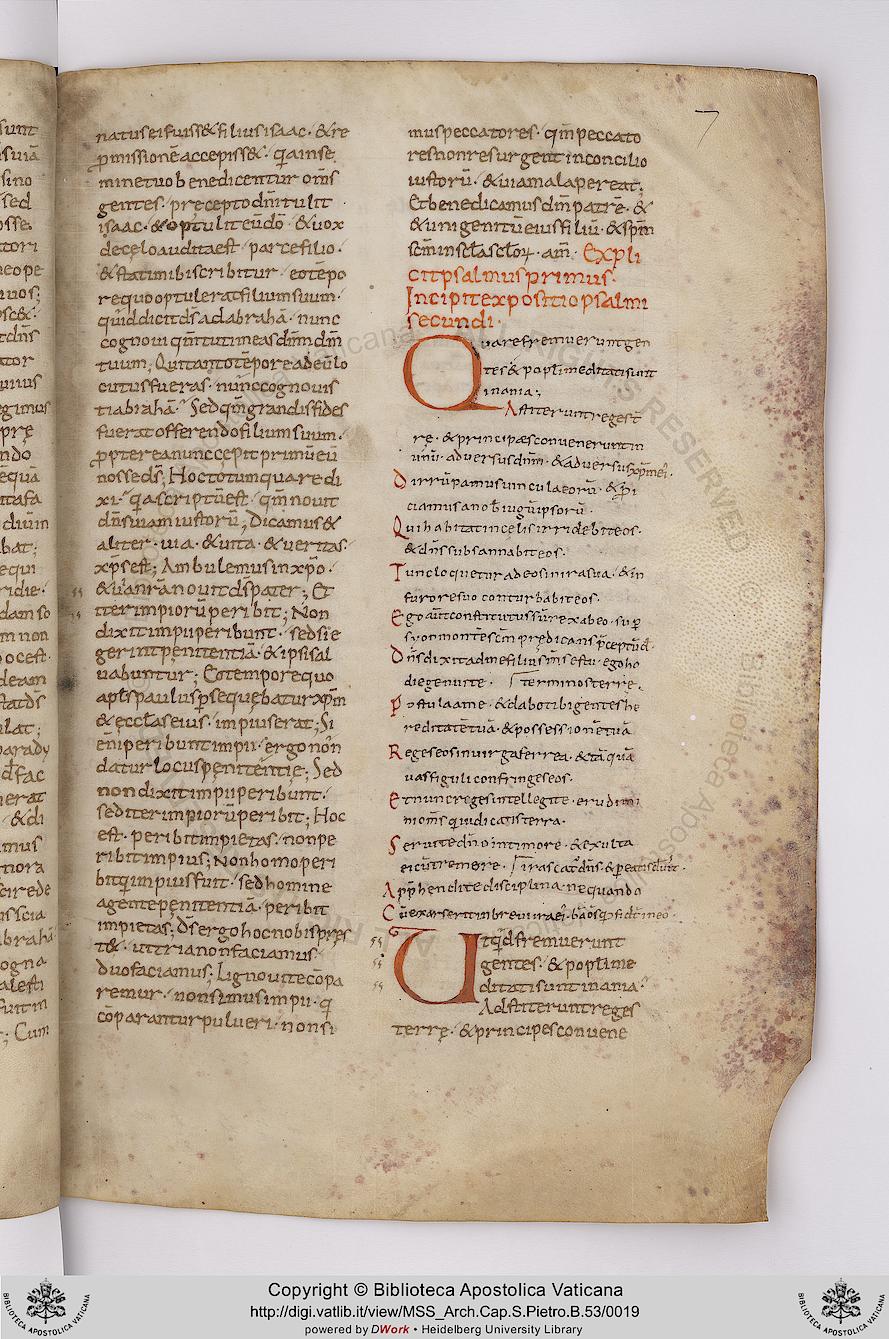 7
natus ei fuisset filius isaac · & re
ꝓmissionē accepisset · qa in se
mine tuo benedicentur om̄s
gentes · precepto dn̄i tulit
isaac · & optulit eūdō · & uox
de cęlo audita est · parce filio ·
& statim ibi scribitur · eo tēpo
re quo optulerat filium suum ·
quid dicit ds̄ ad abrahā · nunc
cognoui qm̄ tu timeas dn̄m dm̄
tuum ; Qui tanto tēpore ad eū lo
cutus fueras · nunc cognouis
ti abrahā · Sed qm̄ grandis fides
fuerat offerendo filium suum ·
ꝓpterea nunc cepit primū eū
nosse ds̄ ; Hoc totum quare di
xi · qa scriptū est · qm̄ nouit
dn̄s uiam iustorū ; Dicamus &
aliter · uia · & uita · & ueritas ·
xp̄s est ; Ambulemus in xp̄o ·
& uiā nr̄an nouit ds̄ pater ; Et
iter impiorū peribit ; Non
dixit impii peribunt · sed si e
gerint penitentiā · & ipsi sal
uabuntur ; Eo tempore quo
apl̄s paulus ꝑsequebatur xp̄m
& eccl̄as eius · impius erat ; Si
eni peribunt impii · ergo non
datur locus penitentię ; Sed
non dixit impii peribunt ·
sed iter impiorū peribit ; Hoc
est · peribit impietas · non pe
ribit impius ; Non homo peri
bit qui impius fuit · sed homine
agente penitentiā · peribit
impietas ; Ds̄ ergo hoc nobis pręs
tet · ut tria non faciamus ·
duo faciamus ; Ligno uite cōpa
remur · non simus impii · qi
cōparantur pulueri · non si
mus peccatores · qm̄ peccato
res non resurgent in concilio
iustorū · & uia mala pereat ;
Et benedicamus dm̄ patrē · &
& unigenitū eius filiū · & sp̄m
sc̄m in sc̄la sc̄lorꝝ · am̄ · Expli
cit psalmus primus ·
Incipit expositio psalmi
secundi ·
Quare fremuerunt gen
tes & popl̄i meditati sunt
inania ;
Astiterunt reges t̄
rę · & principæs conuenerunt in
unū · aduersus dn̄m · & aduersus xp̄m ei ·
Dirrūpamus uincula eorū · & ꝓi
ciamus a nob iugū ipsorū ·
Qui habitat in celis irridebit eos ·
& dn̄s subsannabit eos ·
Tunc loquetur ad eos in ira sua · & in
furore suo conturbabit eos ·
Ego aūt constitutus sū rex ab eo · sup̄
syon montē sc̄m prędicans p̄ceptū d ·
Dn̄s dixit ad me filius m̄s es tu · ego ho
die genui te · terminos terre ·
Postula a me · & dabo tibi gentes he
reditatē tuā · & possessionē tuā
Reges eos in uirga ferrea · & tāquā
uas figuli confringes eos ·
Et nunc reges intellegite · erudimi
ni om̄s qui iudicatis terra ·
Seruite dn̄o in timore · & exulta
ei cū tremore · irascat dn̄s · & pereatis de uia iust ·
Apprehendite disciplina nequando
Cū exarserit in breui ira ei · bāōs qi fidt in eo ·
Ut qid fremuerunt
gentes · & popl̄i me
ditati sunt inania ·
Adstiterunt reges
terrę · & principes conuene
Copyright © Biblioteca Apostolica Vaticana
http://digi.vatlib.it/view/MSS_Arch.Cap.S.Pietro.B.53/0019
powered by DWork • Heidelberg University Library